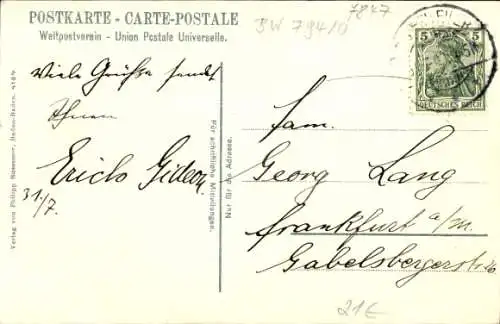 POSTKARTE - CARTE-POSTALE
Weltpostverein - Union Postale Universelle.
BW 794/0
7847
5 5
DEUTSCHES REICH
Viele Grüsse sendet
Ihnen
Erich Gideon
31/7.
Fam.
Georg Lang
Frankfurt a/m.
Gabelsbergerstr.
Für schriftliche Mitteilungen.
Nur für die Adresse.
Verlag von Philipp Bussemer, Baden-Baden.
21€